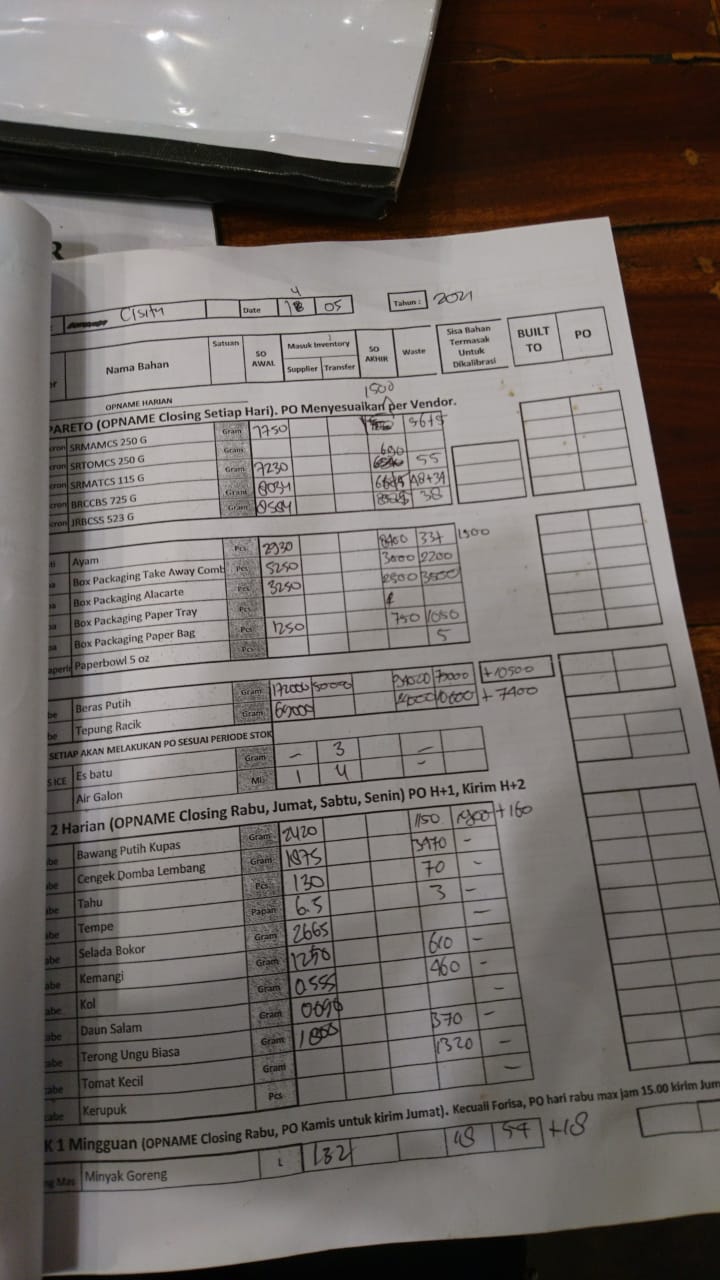 R
Cisitu Date 18 4 05 Tahun : 2021
Nama Bahan Satuan SO AWAL Masuk Inventory Supplier Transfer SO AKHIR Waste Sisa Bahan Termasak Untuk Dikalibrasi BUILT TO PO
OPNAME HARIAN
PARETO (OPNAME Closing Setiap Hari). PO Menyesuaikan per Vendor.
1500
SRMAMCS 250 G Gram 7750
SRTOMCS 250 G Gram
SRMATCS 115 G Gram 7230 55
BRCCBS 725 G Gram 48+34
JRBCSS 523 G Gram 38
Ayam Pcs 2930 337 1900
Box Packaging Take Away Comb Pcs 5250 3000 2200
Box Packaging Alacarte Pcs 3250 3500
Box Packaging Paper Tray Pcs
Box Packaging Paper Bag Pcs 1250 750 1050
Paperbowl 5 oz Pcs 5
Beras Putih Gram 172000 50000 +10500
Tepung Racik Gram + 7400
SETIAP AKAN MELAKUKAN PO SESUAI PERIODE STOK
ICE Es batu Gram - 3 -
Air Galon Ml 1 4 -
2 Harian (OPNAME Closing Rabu, Jumat, Sabtu, Senin) PO H+1, Kirim H+2
Bawang Putih Kupas Gram 2420 1150 +160
Cengek Domba Lembang Gram 1875 3470 -
Tahu Pcs 130 70 -
Tempe Papan 6.5 3 -
Selada Bokor Gram 2665 -
Kemangi Gram 1250 -
Kol Gram 0555 460 -
Daun Salam -
Terong Ungu Biasa Gram 370 -
Tomat Kecil Gram 1320 -
Kerupuk Pcs -
K 1 Mingguan (OPNAME Closing Rabu, PO Kamis untuk kirim Jumat). Kecuali Forisa, PO hari rabu max jam 15.00 kirim Jum
Mas Minyak Goreng L 132 18 54 +18